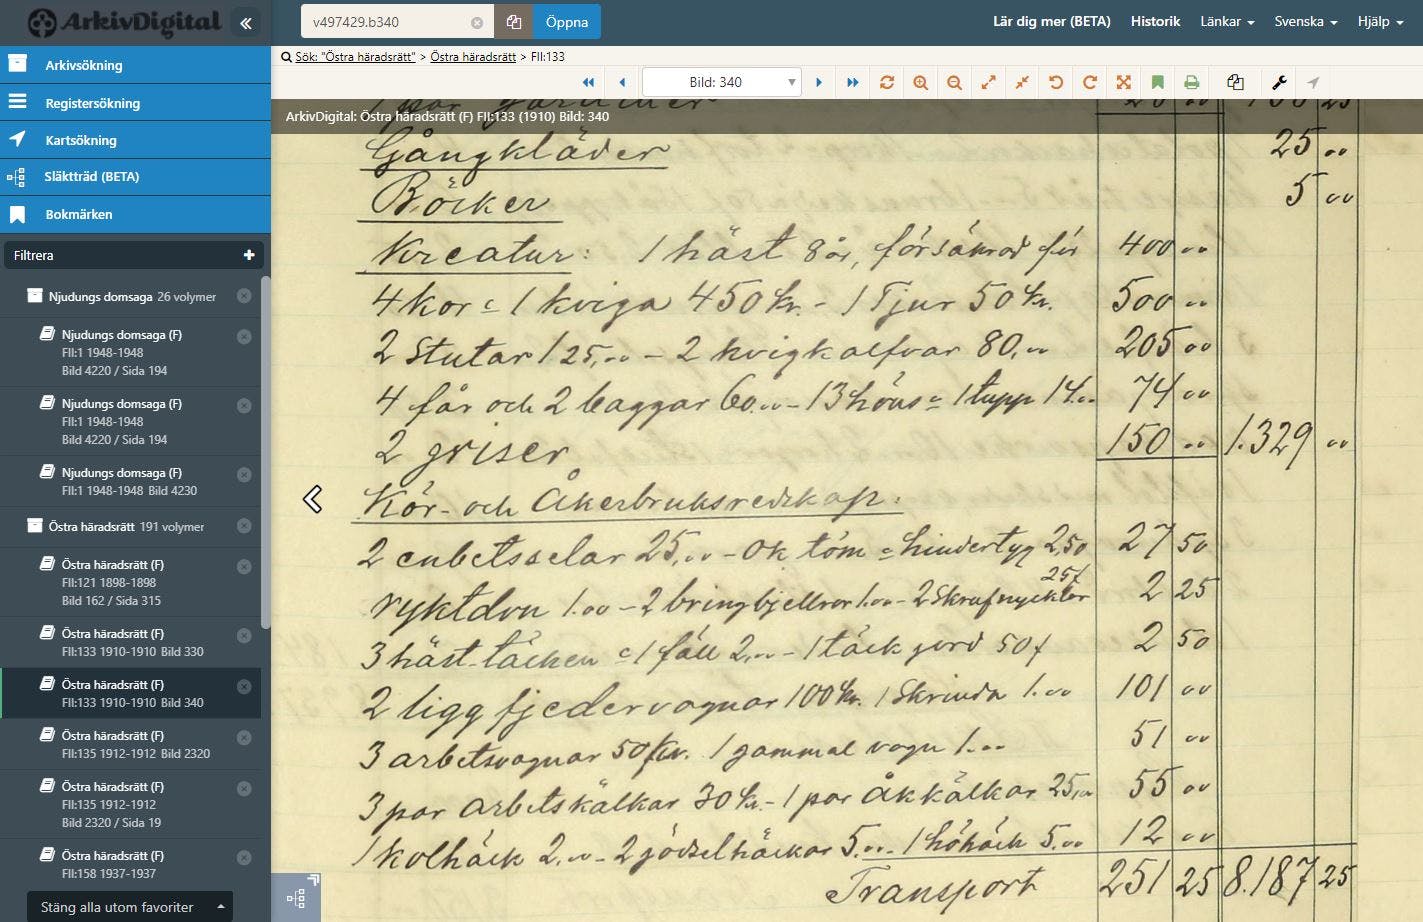 ArkivDigital «
v497429.b340
Öppna
Lär dig mer (BETA) Historik Länkar Svenska Hjälp
Arkivsökning
Registersökning
Kartsökning
Släktträd (BETA)
Bokmärken
Filtrera +
Njudungs domsaga 26 volymer
Njudungs domsaga (F)
FII:1 1948-1948
Bild 4220 / Sida 194
Njudungs domsaga (F)
FII:1 1948-1948
Bild 4220 / Sida 194
Njudungs domsaga (F)
FII:1 1948-1948 Bild 4230
Östra häradsrätt 191 volymer
Östra häradsrätt (F)
FII:121 1898-1898
Bild 162 / Sida 315
Östra häradsrätt (F)
FII:133 1910-1910 Bild 330
Östra häradsrätt (F)
FII:133 1910-1910 Bild 340
Östra häradsrätt (F)
FII:135 1912-1912 Bild 2320
Östra häradsrätt (F)
FII:135 1912-1912
Bild 2320 / Sida 19
Östra häradsrätt (F)
FII:158 1937-1937
Stäng alla utom favoriter
Sök: "Östra häradsrätt" > Östra häradsrätt > FII:133
Bild: 340
ArkivDigital: Östra häradsrätt (F) FII:133 (1910) Bild: 340
1 par
Gångkläder 25 „
Böcker 5 „
Kreatur: 1 häst 8 år, försämrad för 400 „
4 kor = 1 kviga 450 Kr. - 1 Tjur 50 Kr. 500 „
2 Stutar 125,„ - 2 kvigkalfvar 80,„ 205 „
4 får och 2 baggar 60,„ - 13 höns = 1 tupp 14,„ 74 „
2 griser 150 „ 1.329 „
Kör- och Åkerbruksredskap:
2 enbetsselar 25,„ - ok töm = hindertyg 2,50 27 50
ryktdon 1.00 - 2 bringbjellror 1.00 - 2 Skrufnycklar 25f 2 25
3 häst-täcken = 1 fäll 2,„ - 1 täck jord 50 f 2 50
2 ligg fjedervagnar 100 Kr. 1 Skrinda 1.„ 101 „
3 arbetsvagnar 50 Kr. 1 gammal vagn 1.„ 51 „
3 par arbetskälkar 30 Kr. - 1 par åkkälkar 25,„ 55 „
1 kolhäck 2,„ - 2 gödselhäckar 5.„ - 1 höhäck 5.„ 12 „
Transport 251 25 8.187 25